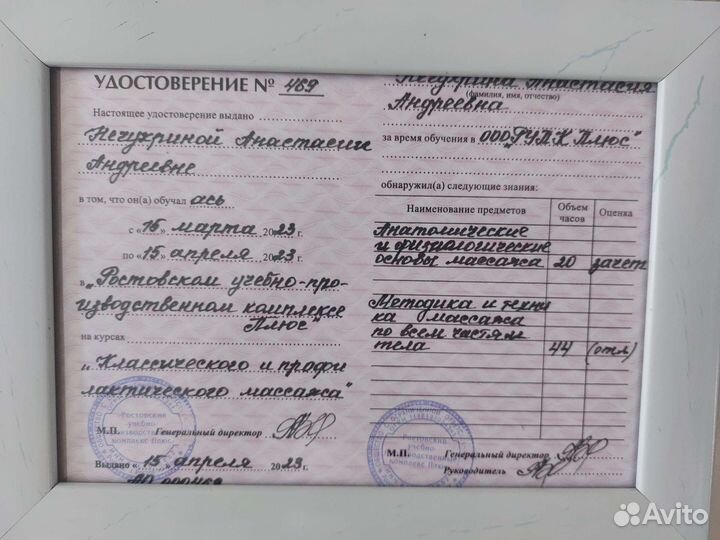 УДОСТОВЕРЕНИЕ № 469
Настоящее удостоверение выдано
Нечухриной Анастасии
Андреевне
в том, что он(а) обучал ась
с «16» марта 2023 г.
по «15» апреля 2023 г.
в „Ростовском учебно-про-
изводственном комплексе
Плюс"
на курсах
„Классического и профи
лактического массажа"
Ростовский
учебно-
производственный
комплекс Плюс
М.П. Генеральный директор
Выдано «15» апреля 2023 г.
Нечухрина Анастасия
(фамилия, имя, отчество)
Андреевна
за время обучения в ООО„РУПК Плюс"
обнаружил(а) следующие знания:
Наименование предметов Объем часов Оценка
Анатомические
и физиологические
основы массажа 20 зачет
Методика и техни
ка массажа
по всем частям
тела 44 (отл)
Ростовский
учебно-
производственный
комплекс Плюс
М.П. Генеральный директор
Руководитель
Avito